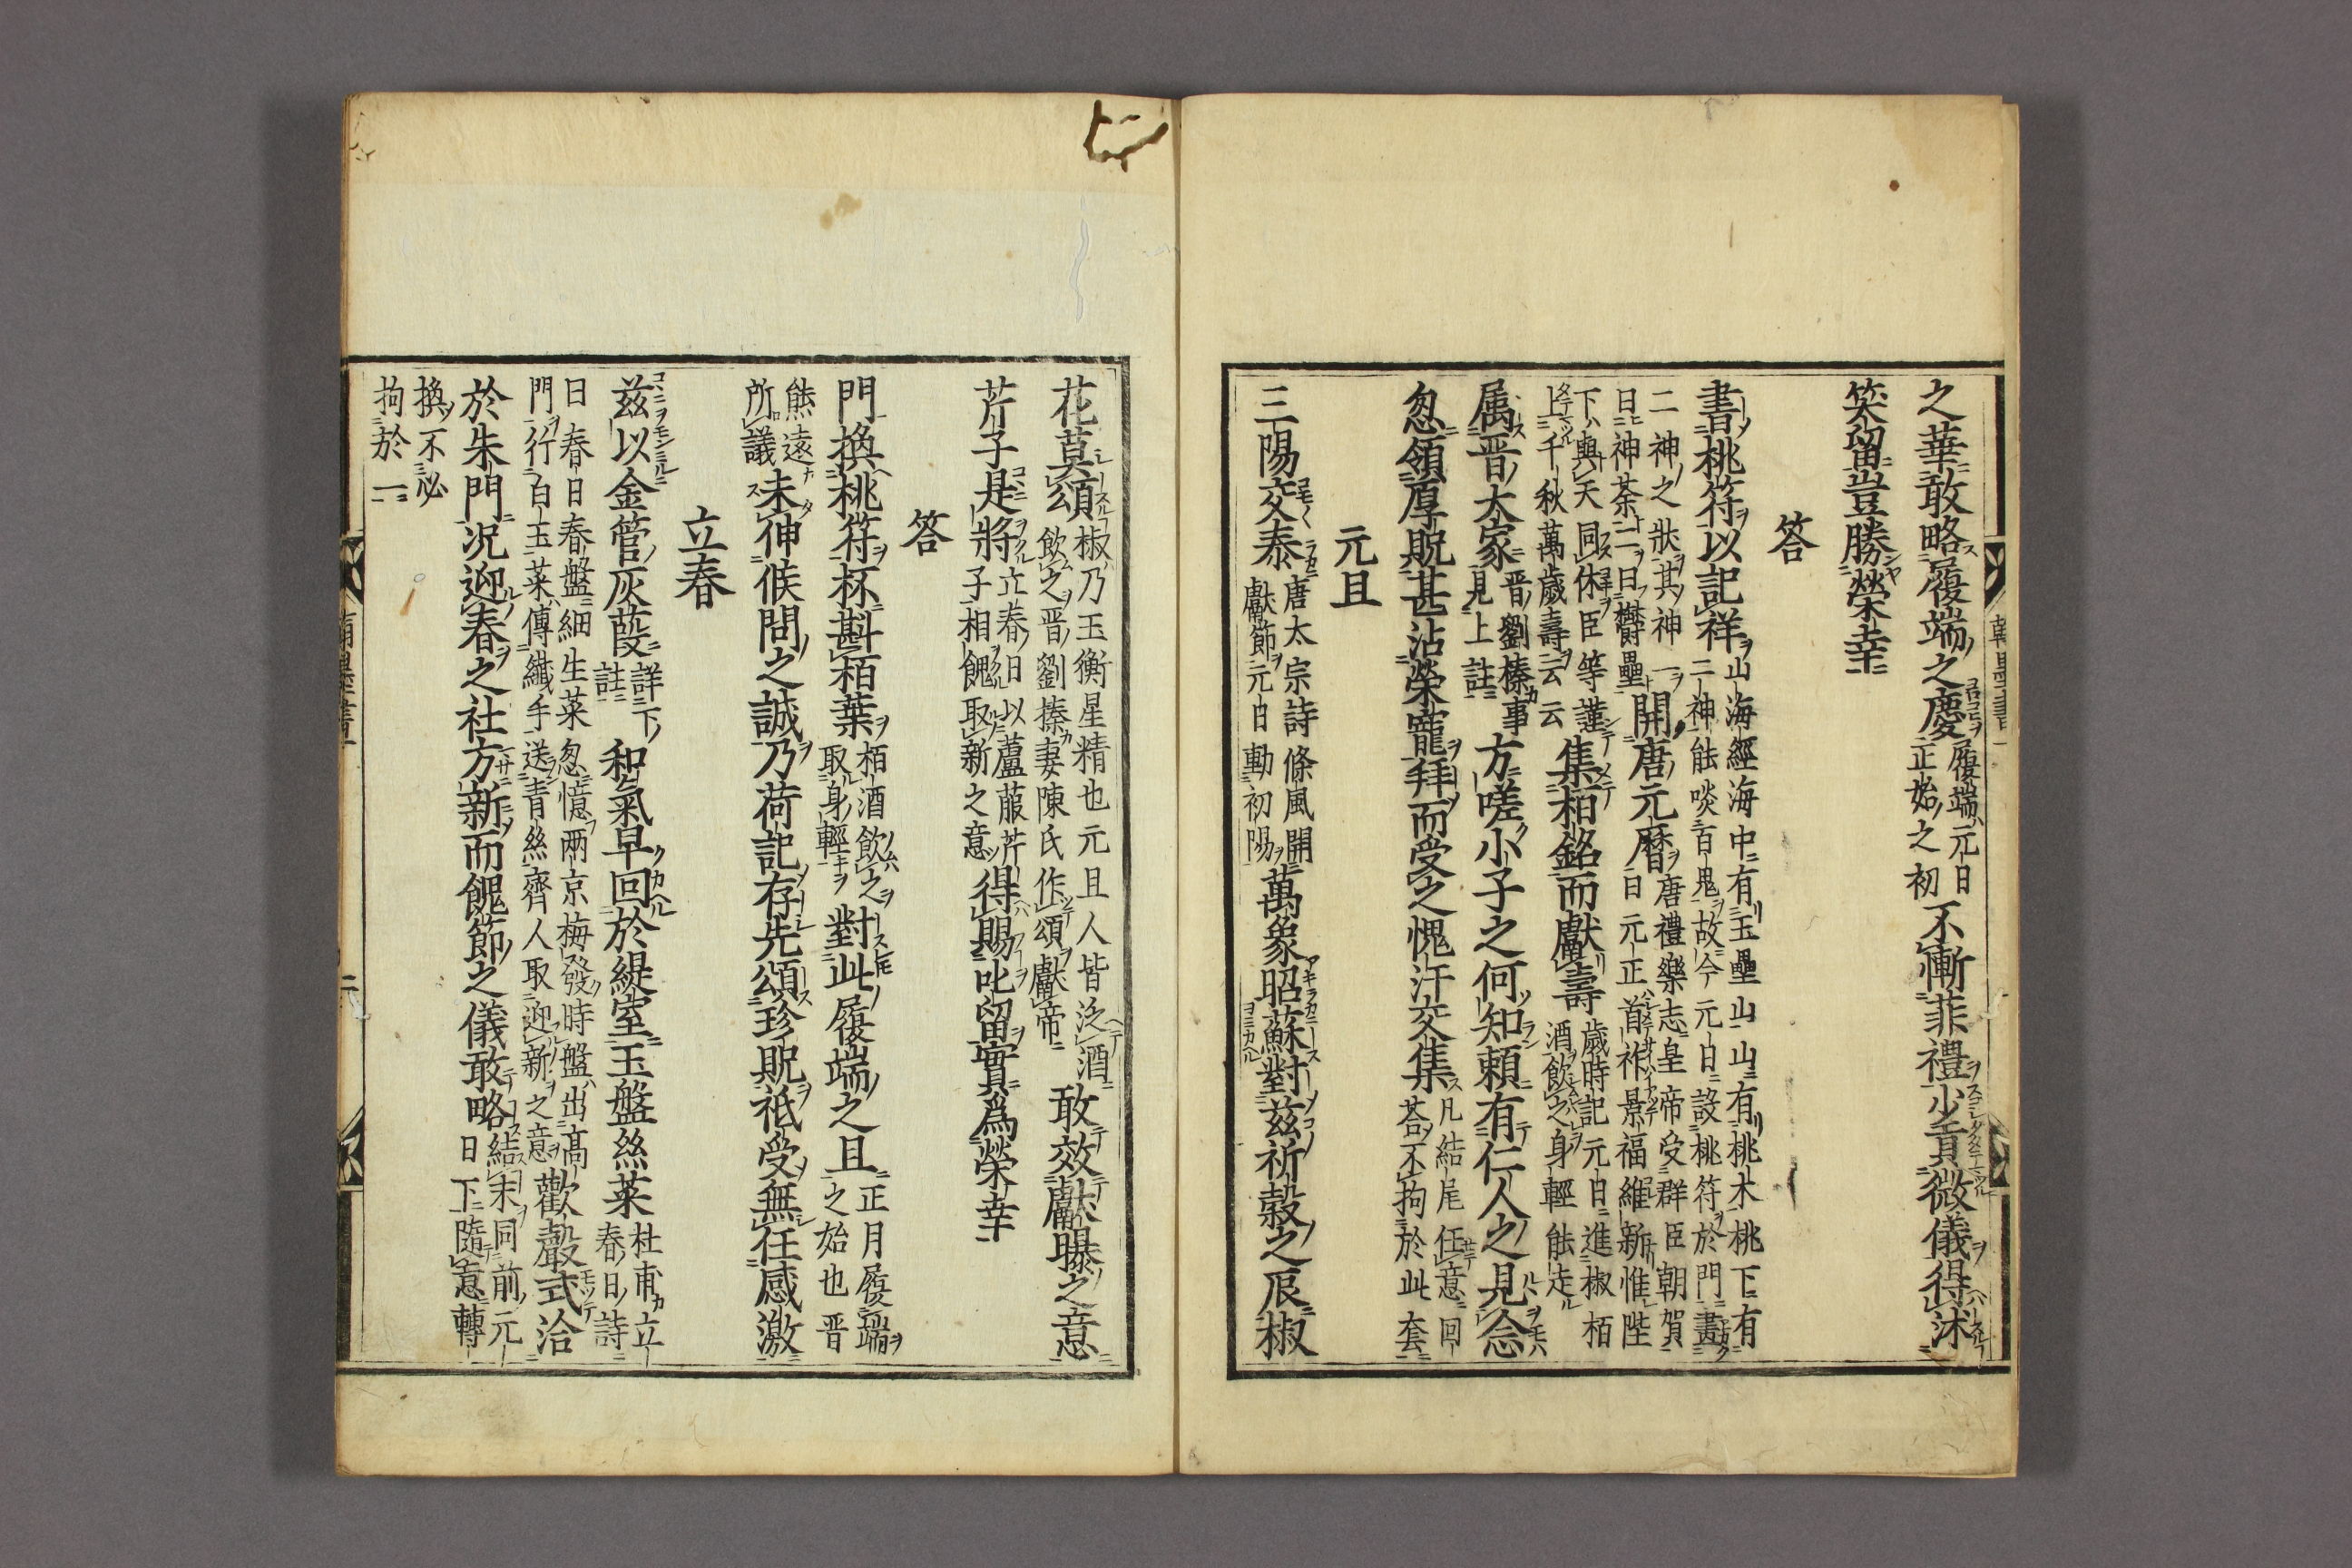 之華敢略履端之慶履端元日正始之初不慚菲禮少貢微儀得沭
笑留豈勝榮幸
答
書桃符以記祥山海經海中有玉壘山山有桃木桃下有二神能啖百鬼故今元日設桃符於門畫
二神之狀其神一曰神荼二曰欝壘開唐元曆唐禮樂志皇帝受群臣朝賀曰元正首祚景福維新惟陛
下與天同休臣等謹上千秋萬歲壽云云集栢銘而獻壽歲時記元日進椒栢酒飲之身輕能走
属晋太家晋劉榛事見上註方嗟小子之何知頼有仁人之見念
忽領厚貺甚沾榮寵拜而受之愧汗交集凡結尾任意回荅不拘於此套
元旦
三陽交泰唐太宗詩條風開獻節元日動初陽萬象昭蘇對茲祈穀之辰椒
花莫頌椒乃玉衡星精也元旦人皆泛酒飲之晋劉搸妻陳氏作頌獻帝敢效獻曝之意
芹子是將立春日以蘆菔芹子相餽取新之意得賜叱留實爲榮幸
答
門換桃符杯斟栢葉栢酒飲之取身輕對此履端之旦正月履端之始也晋
熊遠所議未伸候問之誠乃荷記存先頒珍貺祗受無任感激
立春
茲以金管灰葭詳下註和氣早回於緹室玉盤絲菜杜甫立春日詩
日春日春盤細生菜忽憶兩京梅發時盤出高門行白玉菜傳纎手送青絲齊人取迎新之意歡聲式洽
於朱門况迎春之社方新而餽節之儀敢略結末同前元日下隨意轉
換不必拘於一
翰墨書
二